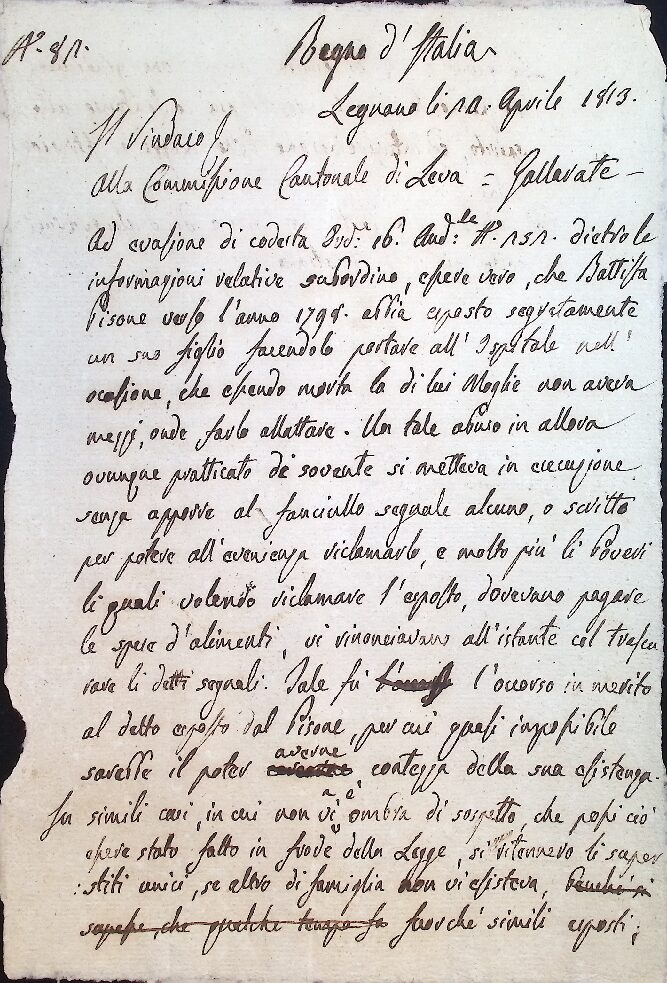 Regno d'Italia
Legnano li Aprile 1813.
Il Sindaco
Alla Commissione Cantonale di Leva = Gallarate -
Ad evasione di codesta 16. And:te N. dietro le
informazioni relative subordino, essere vero, che Battista
Pisone verso l'anno abbia esposto segretamente
un suo figlio facendolo portare all' Ospitale nell'
ocasione, che essendo morta la di lui Moglie non aveva
mezzi, onde farlo allattare. Un tale abuso in allora
ovunque pratticato de sovente si metteva in esecuzione
senza apporre al fanciullo segnale alcuno, o scritto
per potere all'evenienza riclamarlo, e molto più li Poveri
li quali volendo riclamare l'esposto, dovevano pagare
le spese d'alimenti, vi rinonciavano all'istante col trascu
rare li detti segnali. Tale fù l'occorso in merito
al detto esposto dal Pisone, per cui quasi impossibile
sarebbe il poter averne contezza della sua esistenza.
In simili casi, in cui non vi è ombra di sospetto, che possi ciò
essere stato fatto in frode della Legge, si ritennero li super
:stiti unici, se altro di famiglia non vi esisteva, benché si
sapesse, che qualche tempo fa fuorché simili esposti;